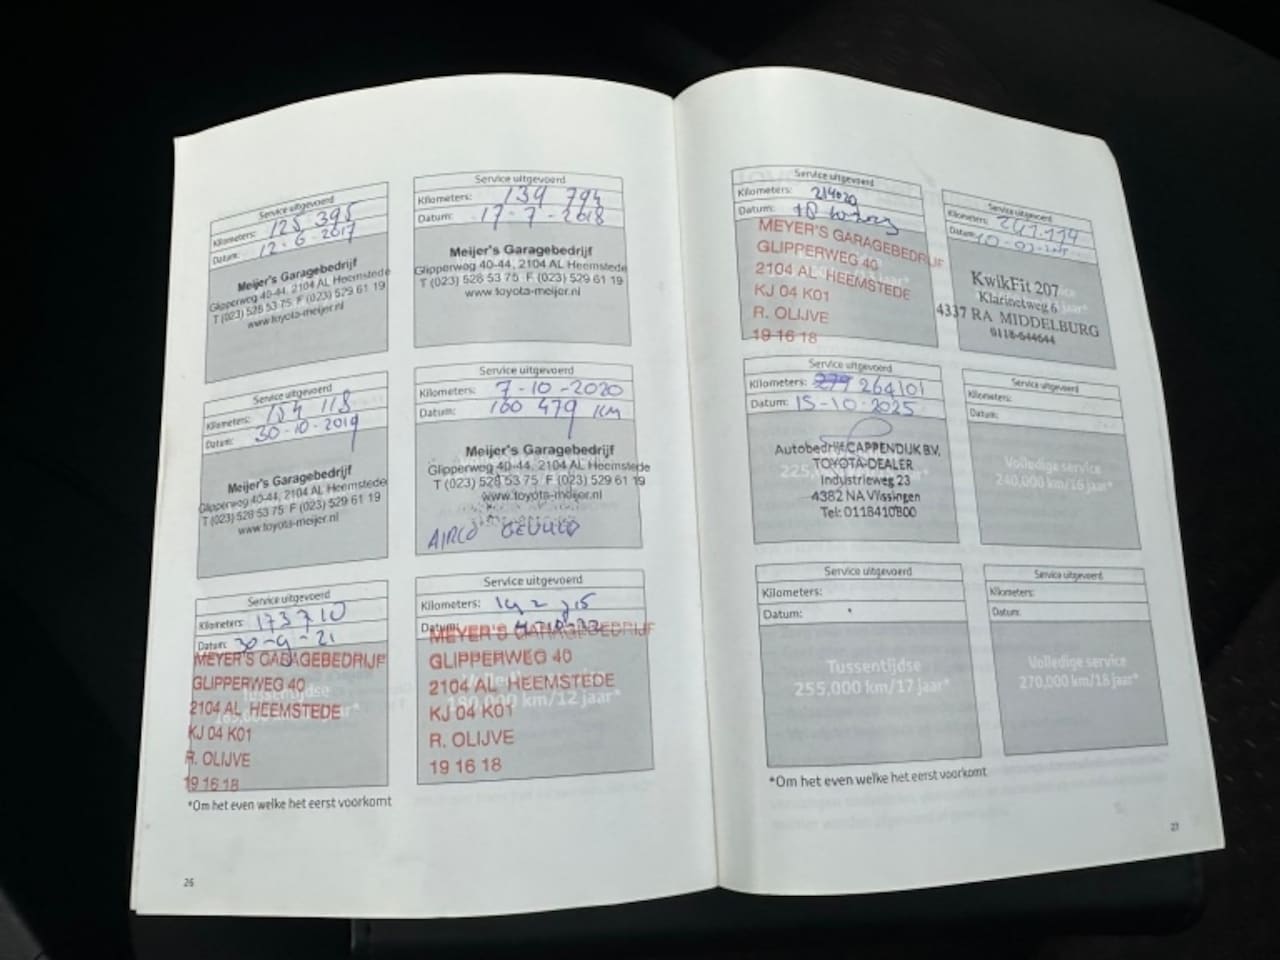 Service uitgevoerd
Kilometers: 125 395
Datum: 12-6-2017
Meijer's Garagebedrijf
Glipperweg 40-44, 2104 AL Heemstede
T (023) 528 53 75 F (023) 529 61 19
www.toyota-meijer.nl
Service uitgevoerd
Kilometers: 139 794
Datum: 17-7-2018
Meijer's Garagebedrijf
Glipperweg 40-44, 2104 AL Heemstede
T (023) 528 53 75 F (023) 529 61 19
www.toyota-meijer.nl
Service uitgevoerd
Kilometers: 154 118
Datum: 30-10-2019
Meijer's Garagebedrijf
Glipperweg 40-44, 2104 AL Heemstede
T (023) 528 53 75 F (023) 529 61 19
www.toyota-meijer.nl
Service uitgevoerd
Kilometers: 7-10-2020
Datum: 160 479 KM
Meijer's Garagebedrijf
Glipperweg 40-44, 2104 AL Heemstede
T (023) 528 53 75 F (023) 529 61 19
www.toyota-meijer.nl
AIRCO GEVULD
Service uitgevoerd
Kilometers: 173710
Datum: 30-9-21
MEYER'S GARAGEBEDRIJF
GLIPPERWEG 40
2104 AL HEEMSTEDE
KJ 04 K01
R. OLIJVE
19 16 18
Service uitgevoerd
Kilometers:
Datum:
MEYER'S GARAGEBEDRIJF
GLIPPERWEG 40
2104 AL HEEMSTEDE
180,000 km/12 jaar*
KJ 04 K01
R. OLIJVE
19 16 18
*Om het even welke het eerst voorkomt
26
Service uitgevoerd
Kilometers: 214020
Datum:
MEYER'S GARAGEBEDRIJF
GLIPPERWEG 40
2104 AL HEEMSTEDE
KJ 04 K01
R. OLIJVE
19 16 18
Service uitgevoerd
Kilometers:
Datum:
KwikFit 207
Klarinetweg 6
4337 RA MIDDELBURG
0118-644644
Service uitgevoerd
Kilometers: 264101
Datum: 15-10-2025
Autobedrijf CAPPENDIJK BV.
TOYOTA-DEALER
Industrieweg 23
4382 NA Vlissingen
Tel: 0118410800
Service uitgevoerd
Kilometers:
Datum:
Volledige service
240,000 km/16 jaar*
Service uitgevoerd
Kilometers:
Datum:
Tussentijdse
255,000 km/17 jaar*
Service uitgevoerd
Kilometers:
Datum:
Volledige service
270,000 km/18 jaar*
*Om het even welke het eerst voorkomt
27